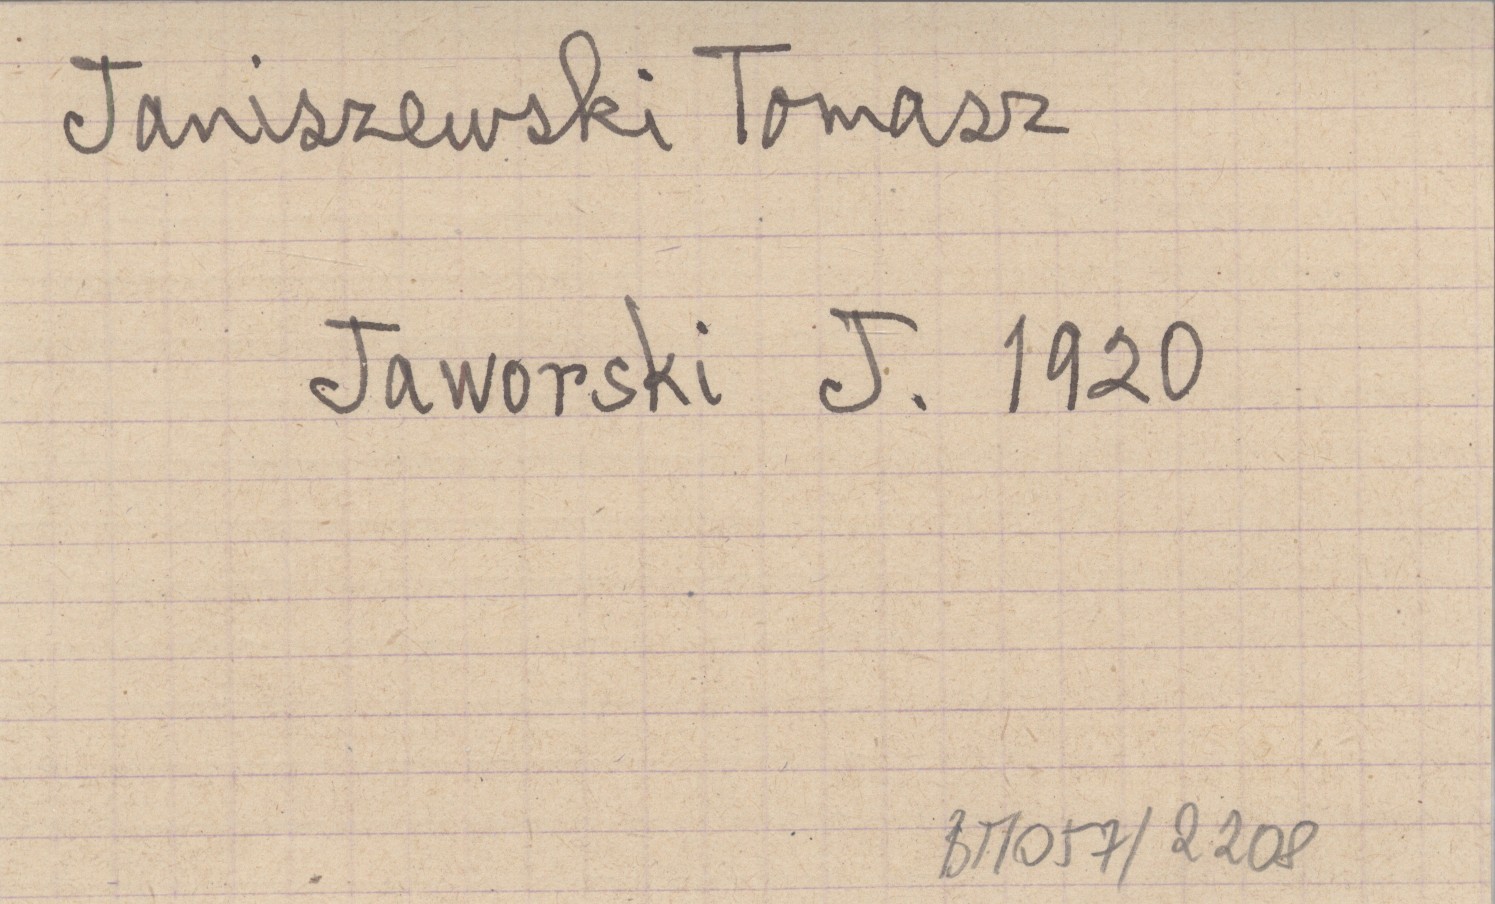 Janiszewski Tomasz
Jaworski J. 1920
BM057/2208